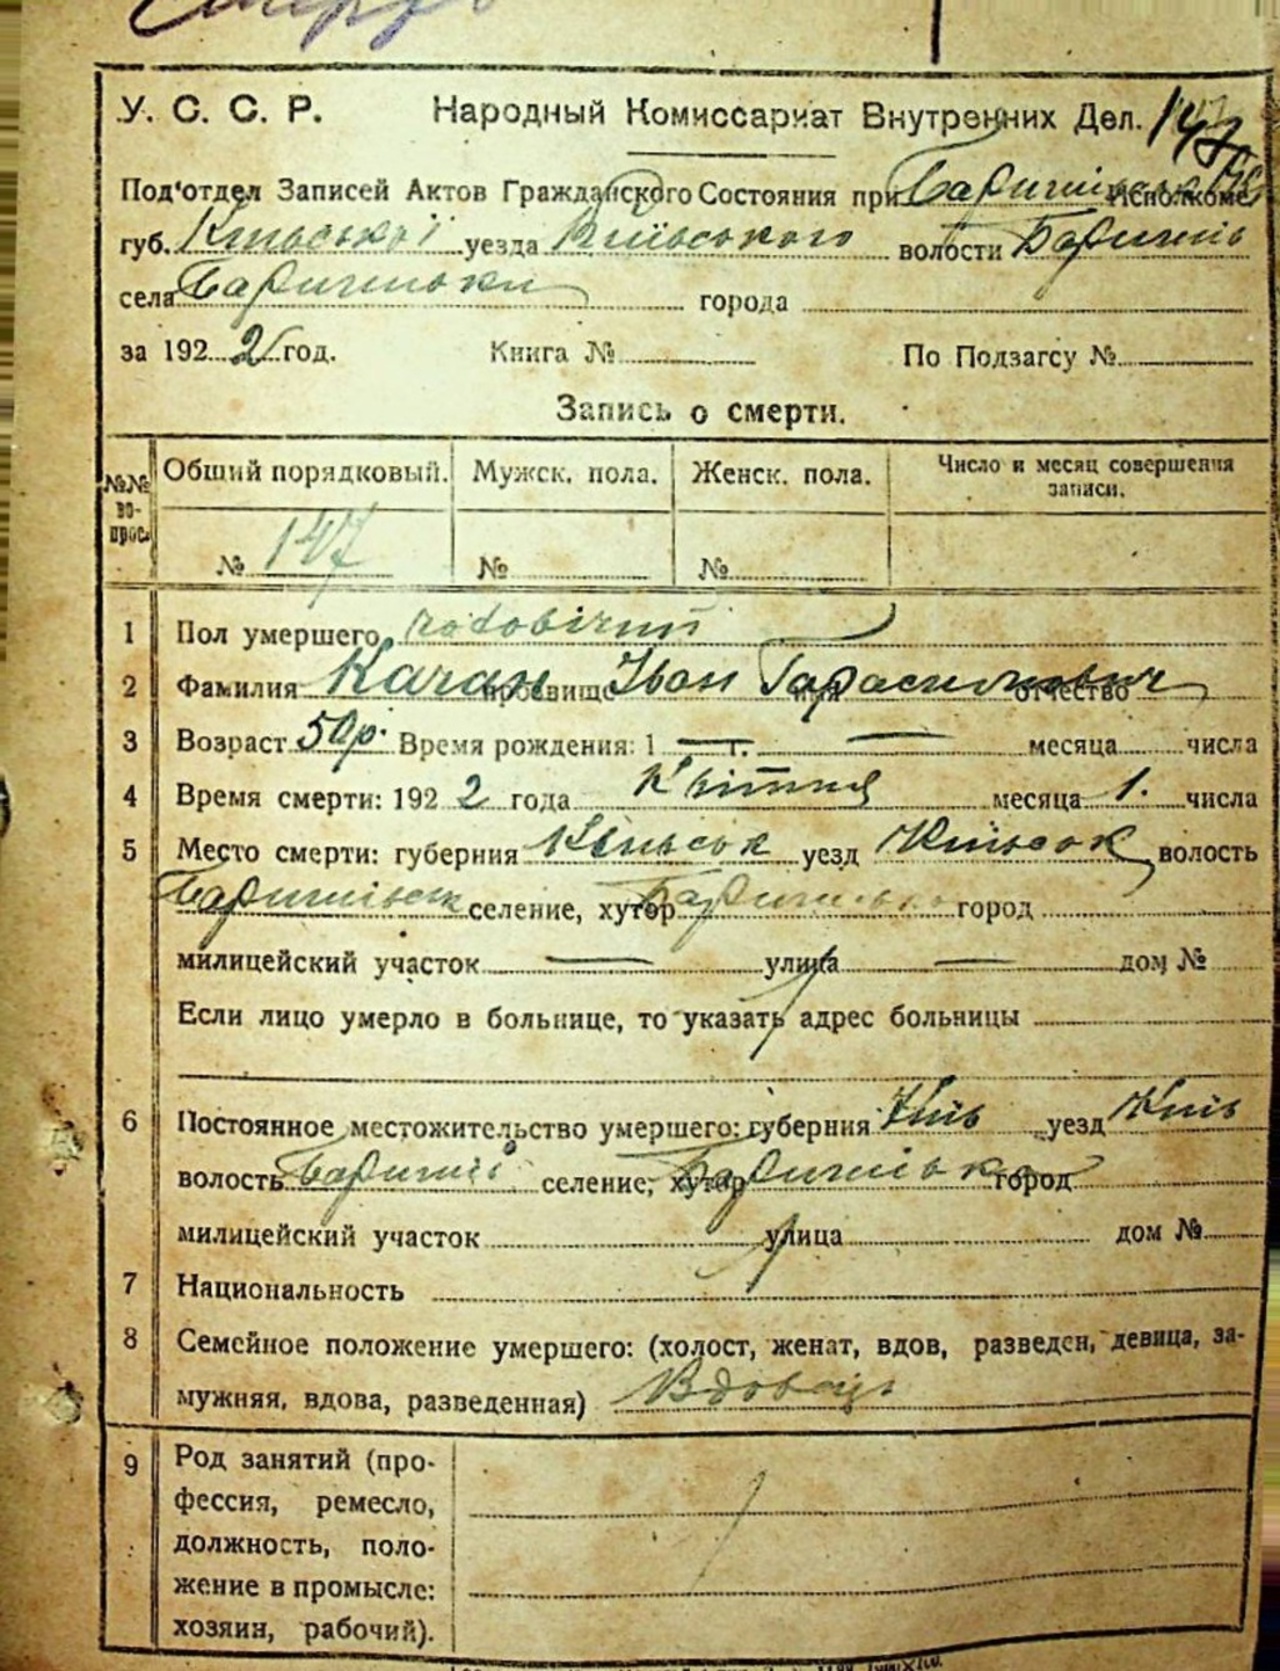 У. С. С. Р. Народный Комиссариат Внутренних Дел. 147
Под'отдел Записей Актов Гражданского Состояния при Исполкоме
губ. Київської уезда Київського волости Баришів
села Баришівки города
за 1922 год. Книга № По Подзагсу №
Запись о смерти.
№№ вопрос. Общий порядковый. Мужск. пола. Женск. пола. Число и месяц совершения записи.
№ 147 № №
1 Пол умершего чоловічий
2 Фамилия Качан прозвище Іван имя Тарасимович отчество
3 Возраст 50 р. Время рождения: 1 — г. — месяца числа
4 Время смерти: 1922 года Квітня месяца 1. числа
5 Место смерти: губерния Київськ уезд Київськ волость
Баришівськ селение, хутор Баришівка город
милицейский участок — улица — дом №
Если лицо умерло в больнице, то указать адрес больницы
6 Постоянное местожительство умершего: губерния Київ уезд Київ
волость Баришів селение, хутор Баришівка город
милицейский участок улица дом №
7 Национальность
8 Семейное положение умершего: (холост, женат, вдов, разведен, девица, за-
мужняя, вдова, разведенная) Вдовець
9 Род занятий (про-
фессия, ремесло,
должность, поло-
жение в промысле:
хозяин, рабочий).